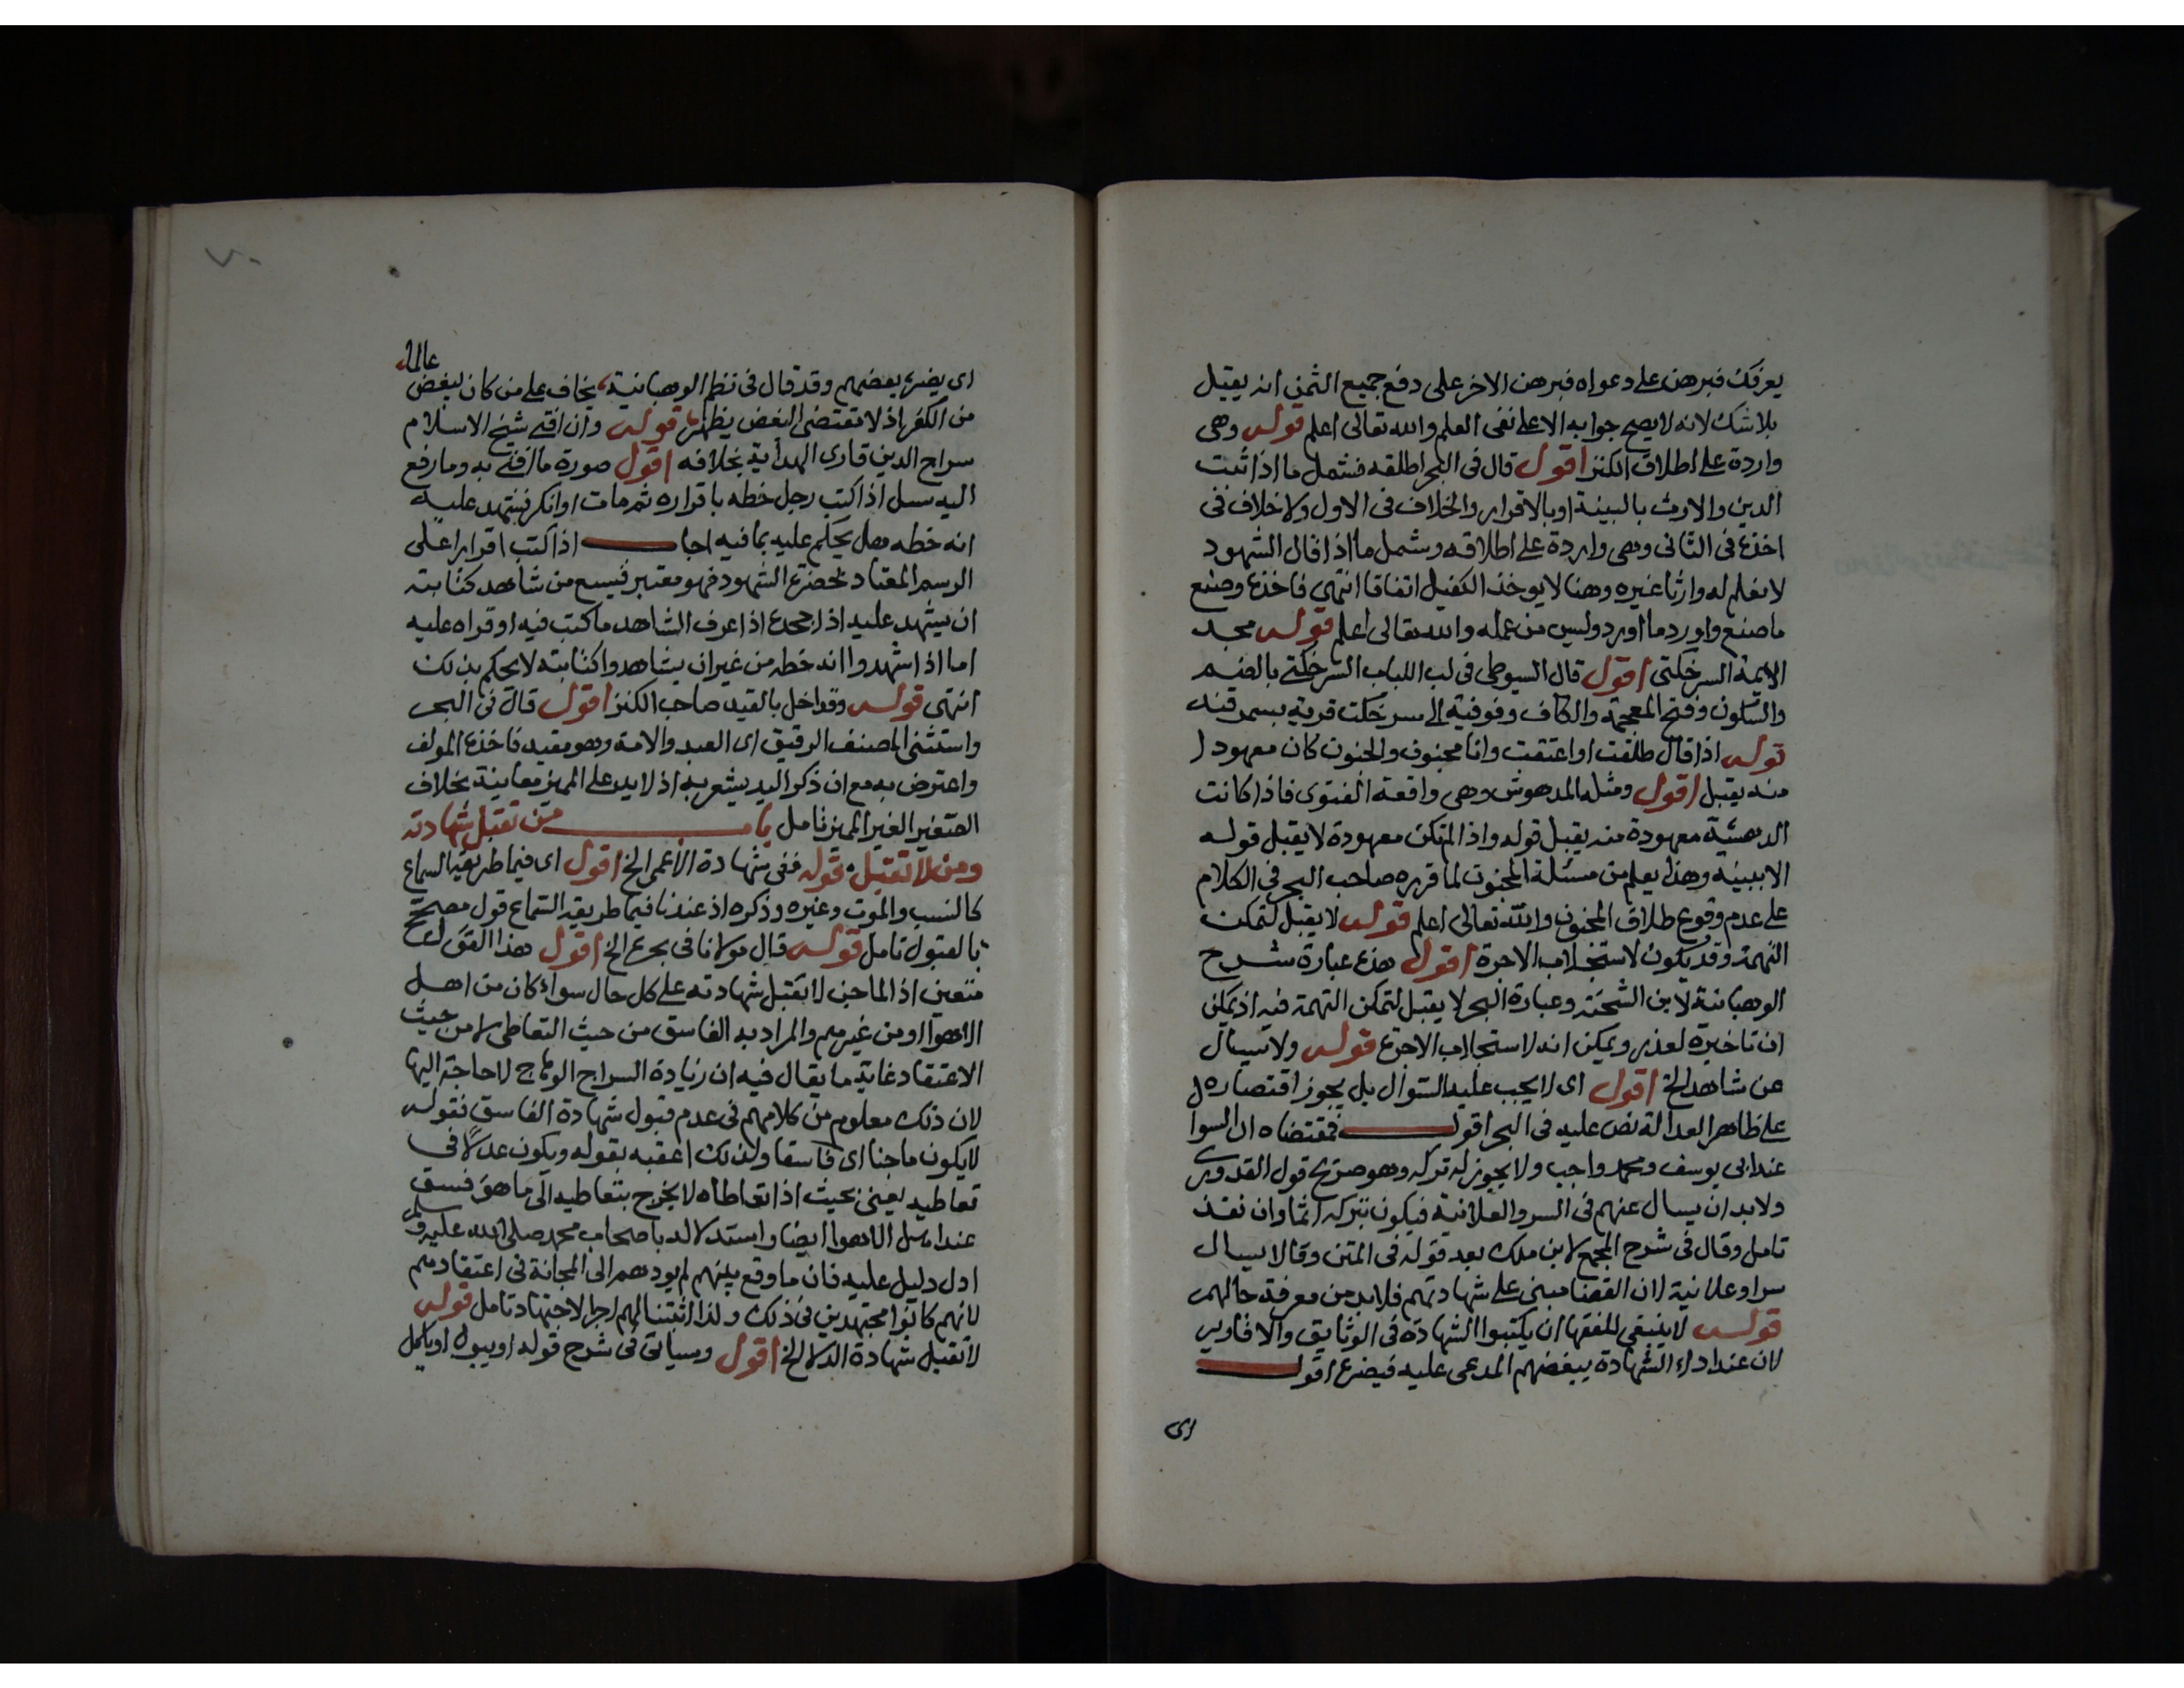 يعرفك فبرهن على دعواه فبرهن الاخر على دفع جميع الثمن انه يقبل
بلا شك لانه لا يصح جوابه الا على نفى العلم والله تعالى اعلم قوله وهى
واردة على اطلاق الكنز اقول قال فى البحر اطلقه فشمل ما اذا ثبت
الدين والارث بالبينة او بالاقرار والخلاف فى الاول ولا خلاف فى
اخذه فى الثانى وهى واردة على اطلاقه وشمل ما اذا قال الشهود
لا نعلم له وارثا غيره وهنا لا يوخذ الكفيل اتفاقا انتهى فاخذه وصنع
ما صنع واورد ما اورد وليس من عمله والله تعالى اعلم قوله مجد
الايمة السرخكتى اقول قال السيوطى فى لب اللباب السرخكتى بالضم
والسكون وفتح المعجمة والكاف وفوقية الى سرخكت قرية بسمرقند
قوله اذا قال طلقت او اعتقت وانا مجنون والجنون كان معهودا
منه يقبل اقول ومثله المدهوش وهى واقعة الفتوى فاذا كانت
الدهشة معهودة منه يقبل قوله واذا لم تكن معهودة لا يقبل قوله
الا ببينة وهذا يعلم من مسئلة المجنون لما قرره صاحب البحر فى الكلام
على عدم وقوع طلاق المجنون والله تعالى اعلم قوله لا يقبل لتمكن
التهمة وقد يكون لاستجلاب الاجرة اقول هذه عبارة شرح
الوهبانية لابن الشحنة وعبارة البحر لا يقبل لتمكن التهمة فيه اذ يمكن
ان تاخيره لعذر ويمكن انه لاستجلاب الاجرة قوله ولا يسال
عن شاهد الخ اقول اى لا يجب عليه السوال بل يجوز اقتصاره
على ظاهر العدالة نص عليه فى البحر اقول فمقتضاه ان السوا
عند ابى يوسف ومحمد واجب ولا يجوز له تركه وهو صريح قول القدورى
ولا بد ان يسال عنهم فى السر والعلانية فيكون بتركه اثما وان نفذ
تامل وقال فى شرح المجمع لابن ملك بعد قوله فى المتن وقالا يسال
سرا وعلانية لان القضا مبنى على شهادتهم فلا بد من معرفة حالهم
قوله لا ينبغى للفقها ان يكتبوا الشهادة فى الوثايق والاقارير
لان عند اداء الشهادة يبغضهم المدعى عليه فيضره اقول
اى
٧٠
عالما
اى يضره بعضهم وقد قال فى نظم الوهبانية يخاف على من كان يبغض
من الكفر اذ لا مقتضى البغض يظهر قوله وان افتى شيخ الاسلام
سراج الدين قارى الهداية بخلافه اقول صورة ما افتى به وما رفع
اليه سئل اذا كتب رجل خطه باقراره ثم مات او انكر فشهد عليه
انه خطه هل يحكم عليه بما فيه اجاب اذا كتب اقرارا على
الرسم المعتاد بحضرة الشهود فهو معتبر فيسع من شاهد كتابته
ان يشهد عليه اذا جحده اذا عرف الشاهد ما كتب فيه او قراه عليه
اما اذا شهدوا انه خطه من غير ان يشاهدوا كتابته لا يحكم بذلك
انتهى قوله وقد اخل بالقيد صاحب الكنز اقول قال فى البحر
واستثنى المصنف الرقيق اى العبد والامة وهو مقيد فاخذه المولف
واعترض به مع ان ذكر اليد يشعر به اذ لا يد على المميز معاينة بخلاف
الصغير الغير المميز تامل باب من تقبل شهادته
ومن لا تقبل قوله ففى شهادة الاعمى الخ اقول اى فيما طريقه السماع
كالنسب والموت وغيره وذكره اذ عندنا فيما طريقه السماع قول مصحح
بالقبول تامل قوله قال مولانا فى بحره الخ اقول هذا القول
متعين اذ الماجن لا تقبل شهادته على كل حال سواء كان من اهل
الاهوا او من غيرهم والمراد به الفاسق من حيث التعاطى لا من حيث
الاعتقاد غاية ما يقال فيه ان زيادة السراج الوهاج لا حاجة اليها
لان ذلك معلوم من كلامهم فى عدم قبول شهادة الفاسق فقوله
لا يكون ماجنا اى فاسقا ولذلك اعقبه بقوله ويكون عدلا فى
تعاطيه يعنى بحيث اذا تعاطاه لا يخرج بتعاطيه الى ما هو فسق
عند اهل الاهوا ايضا واستدلاله باصحاب محمد صلى الله عليه وسلم
ادل دليل عليه فان ما وقع بينهم لم يودهم الى المجانة فى اعتقادهم
لانهم كانوا مجتهدين فى ذلك ولذا اثبتنا لهم اجر الاجتهاد تامل قوله
لا تقبل شهادة الدلال الخ اقول وسياتى فى شرح قوله او يبول او ياكل